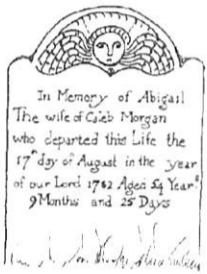 In Memory of Abigail
The wife of Caleb Morgan
who departed this Life the
17th day of August in the year
of our Lord 1762 Aged 54 Years
9 Months and 25 Days